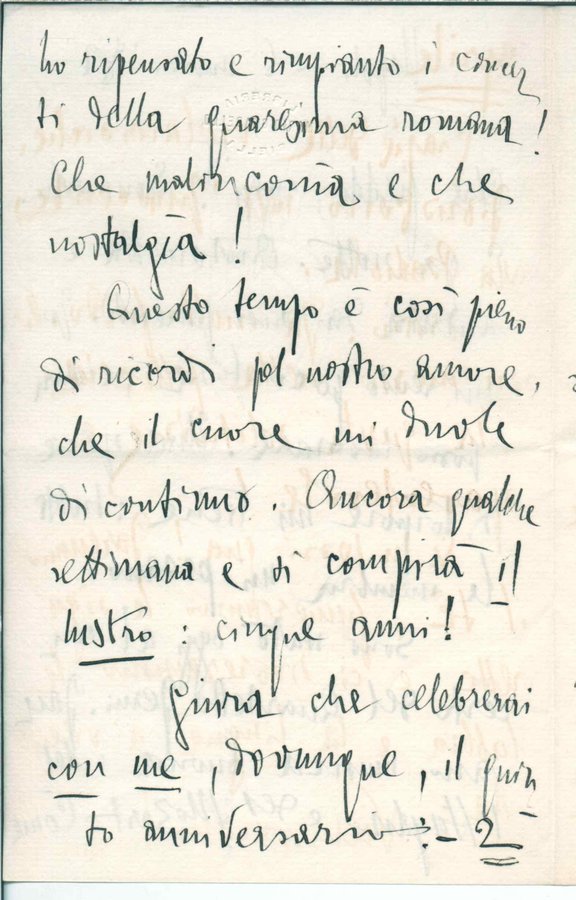 ho ripensato e rimpianto i concer
ti della quaresima romana!
Che malinconia e che
nostalgia!
Questo tempo è così pieno
di ricordi pel nostro amore,
che il cuore mi duole
di continuo. Ancora qualche
settimana e si compirà il
lustro: cinque anni!
Giura che celebrerai
con me, dovunque, il quin
to anniversario :- 2